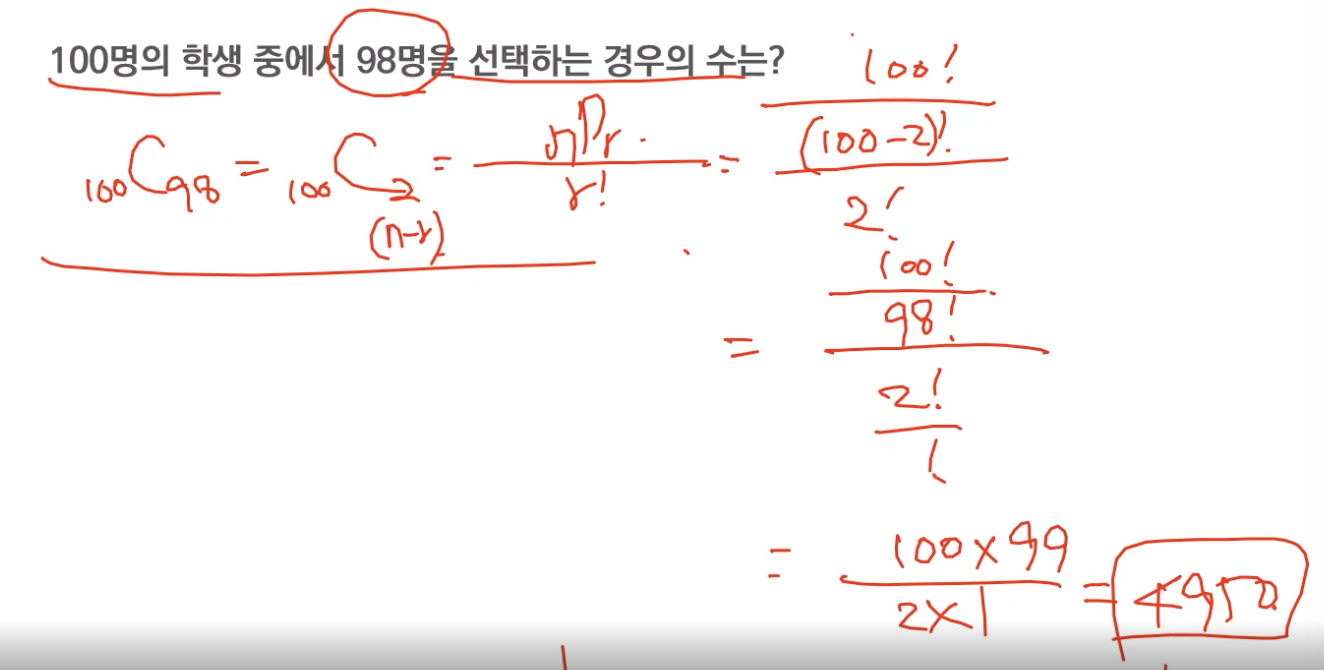 100명의 학생 중에서 98명을 선택하는 경우의 수는?
100C98 = 100C2 = nPr / r! = (100! / (100-2)!) / 2!
(n-r)
= (100! / 98!) / (2! / 1)
= 100×99 / 2×1 = 4950